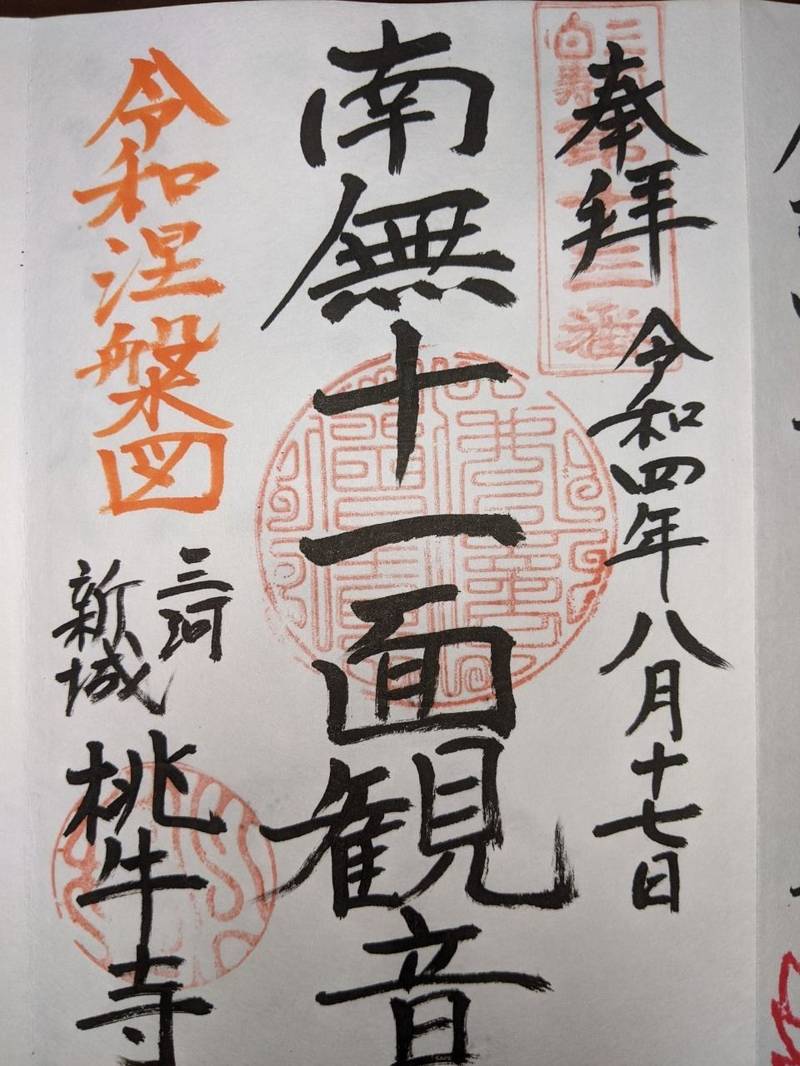 奉拝
令和四年八月十七日
南無十一面観音
令和涅槃図
三河
新城
桃牛寺